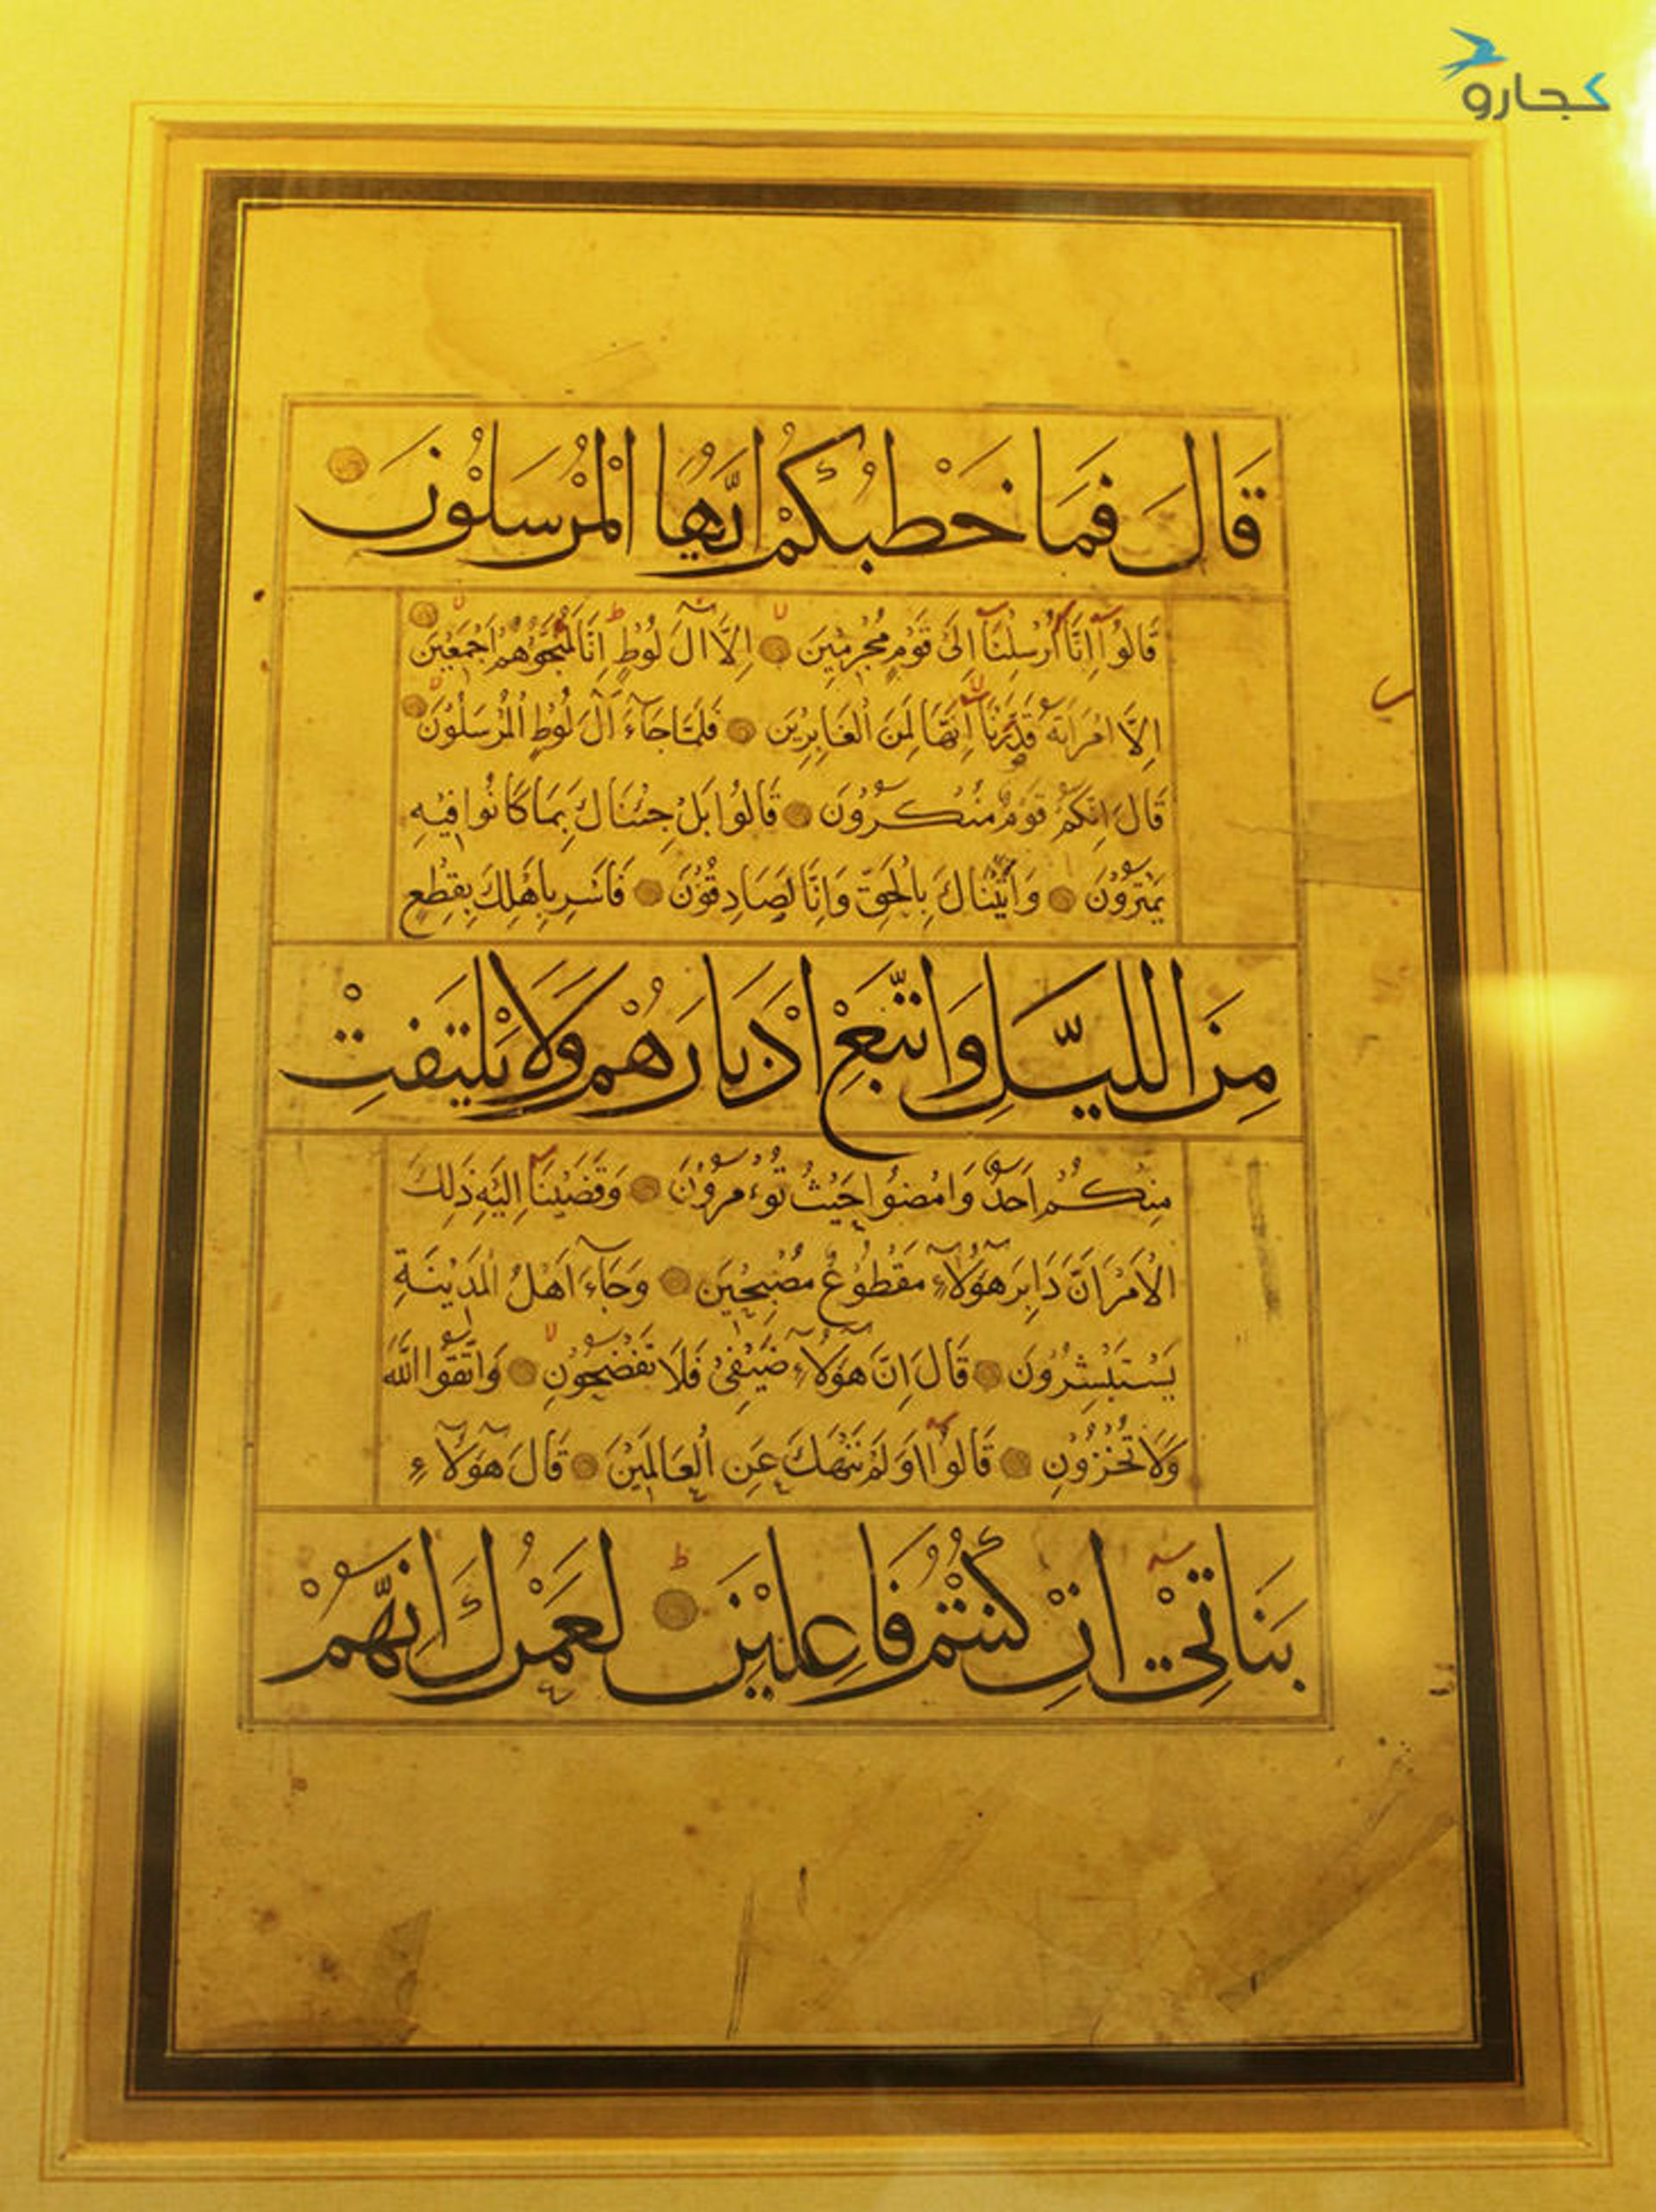 کجارو
قَالَ فَمَا خَطْبُكُمْ اَيُّهَا الْمُرْسَلُوْنَ
قَالُوا اِنَّا اُرْسِلْنَا اِلَى قَوْمٍ مُجْرِمِيْنَ اِلَّا اٰلَ لُوْطٍ اِنَّا لَمُنَجُّوْهُمْ اَجْمَعِيْنَ
اِلَّا امْرَاَتَهُ قَدَّرْنَا اِنَّهَا لَمِنَ الْغَابِرِيْنَ فَلَمَّا جَاءَ اٰلَ لُوْطٍ الْمُرْسَلُوْنَ
قَالَ اِنَّكُمْ قَوْمٌ مُنْكَرُوْنَ قَالُوا بَلْ جِئْنَاكَ بِمَا كَانُوا فِيْهِ
يَمْتَرُوْنَ وَاَتَيْنَاكَ بِالْحَقِّ وَاِنَّا لَصَادِقُوْنَ فَاَسْرِ بِاَهْلِكَ بِقِطْعٍ
مِنَ الليْلِ وَاتَّبِعْ اَدْبَارَهُمْ وَلَا يَلْتَفِتْ
مِنْكُمْ اَحَدٌ وَامْضُوا حَيْثُ تُوءْمَرُوْنَ وَقَضَيْنَا اِلَيْهِ ذَلِكَ
الْاَمْرَ اَنَّ دَابِرَ هَؤُلَاءِ مَقْطُوْعٌ مُصْبِحِيْنَ وَجَاءَ اَهْلُ الْمَدِيْنَةِ
يَسْتَبْشِرُوْنَ قَالَ اِنَّ هَؤُلَاءِ ضَيْفِىْ فَلَا تَفْضَحُوْنِ وَاتَّقُوا اللّٰهَ
وَلَا تُخْزُوْنِ قَالُوا اَوَلَمْ نَنْهَكَ عَنِ الْعَالَمِيْنَ قَالَ هَؤُلَاءِ
بَنَاتِيْ اِنْ كُنْتُمْ فَاعِلِيْنَ لَعَمْرُكَ اِنَّهُمْ